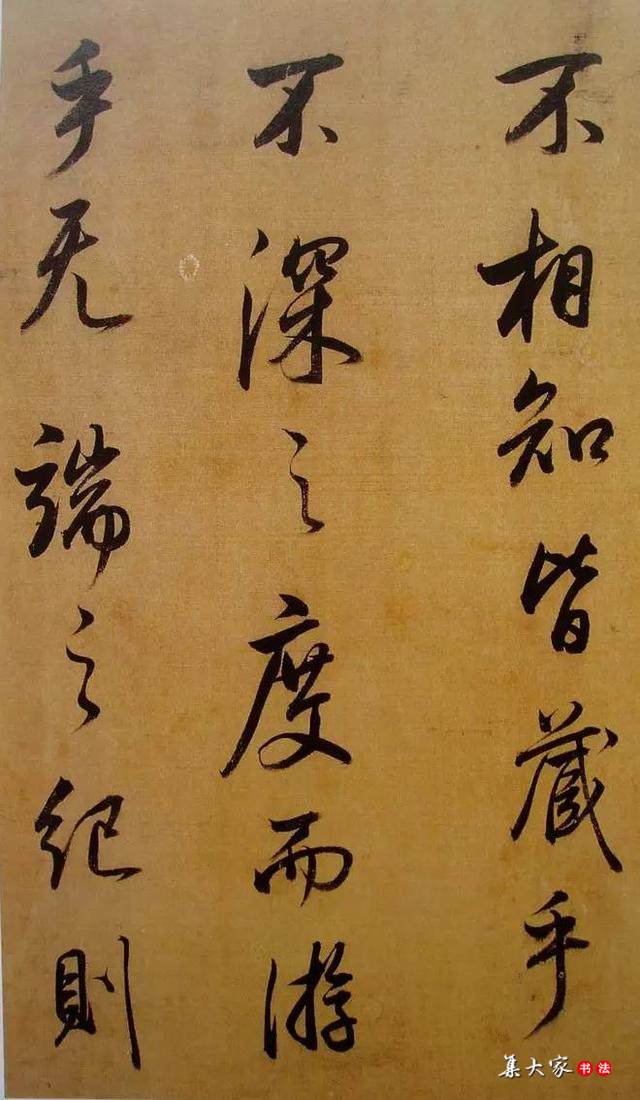 不相知皆藏乎
不深之度而游
乎无端之纪则
集大家书法